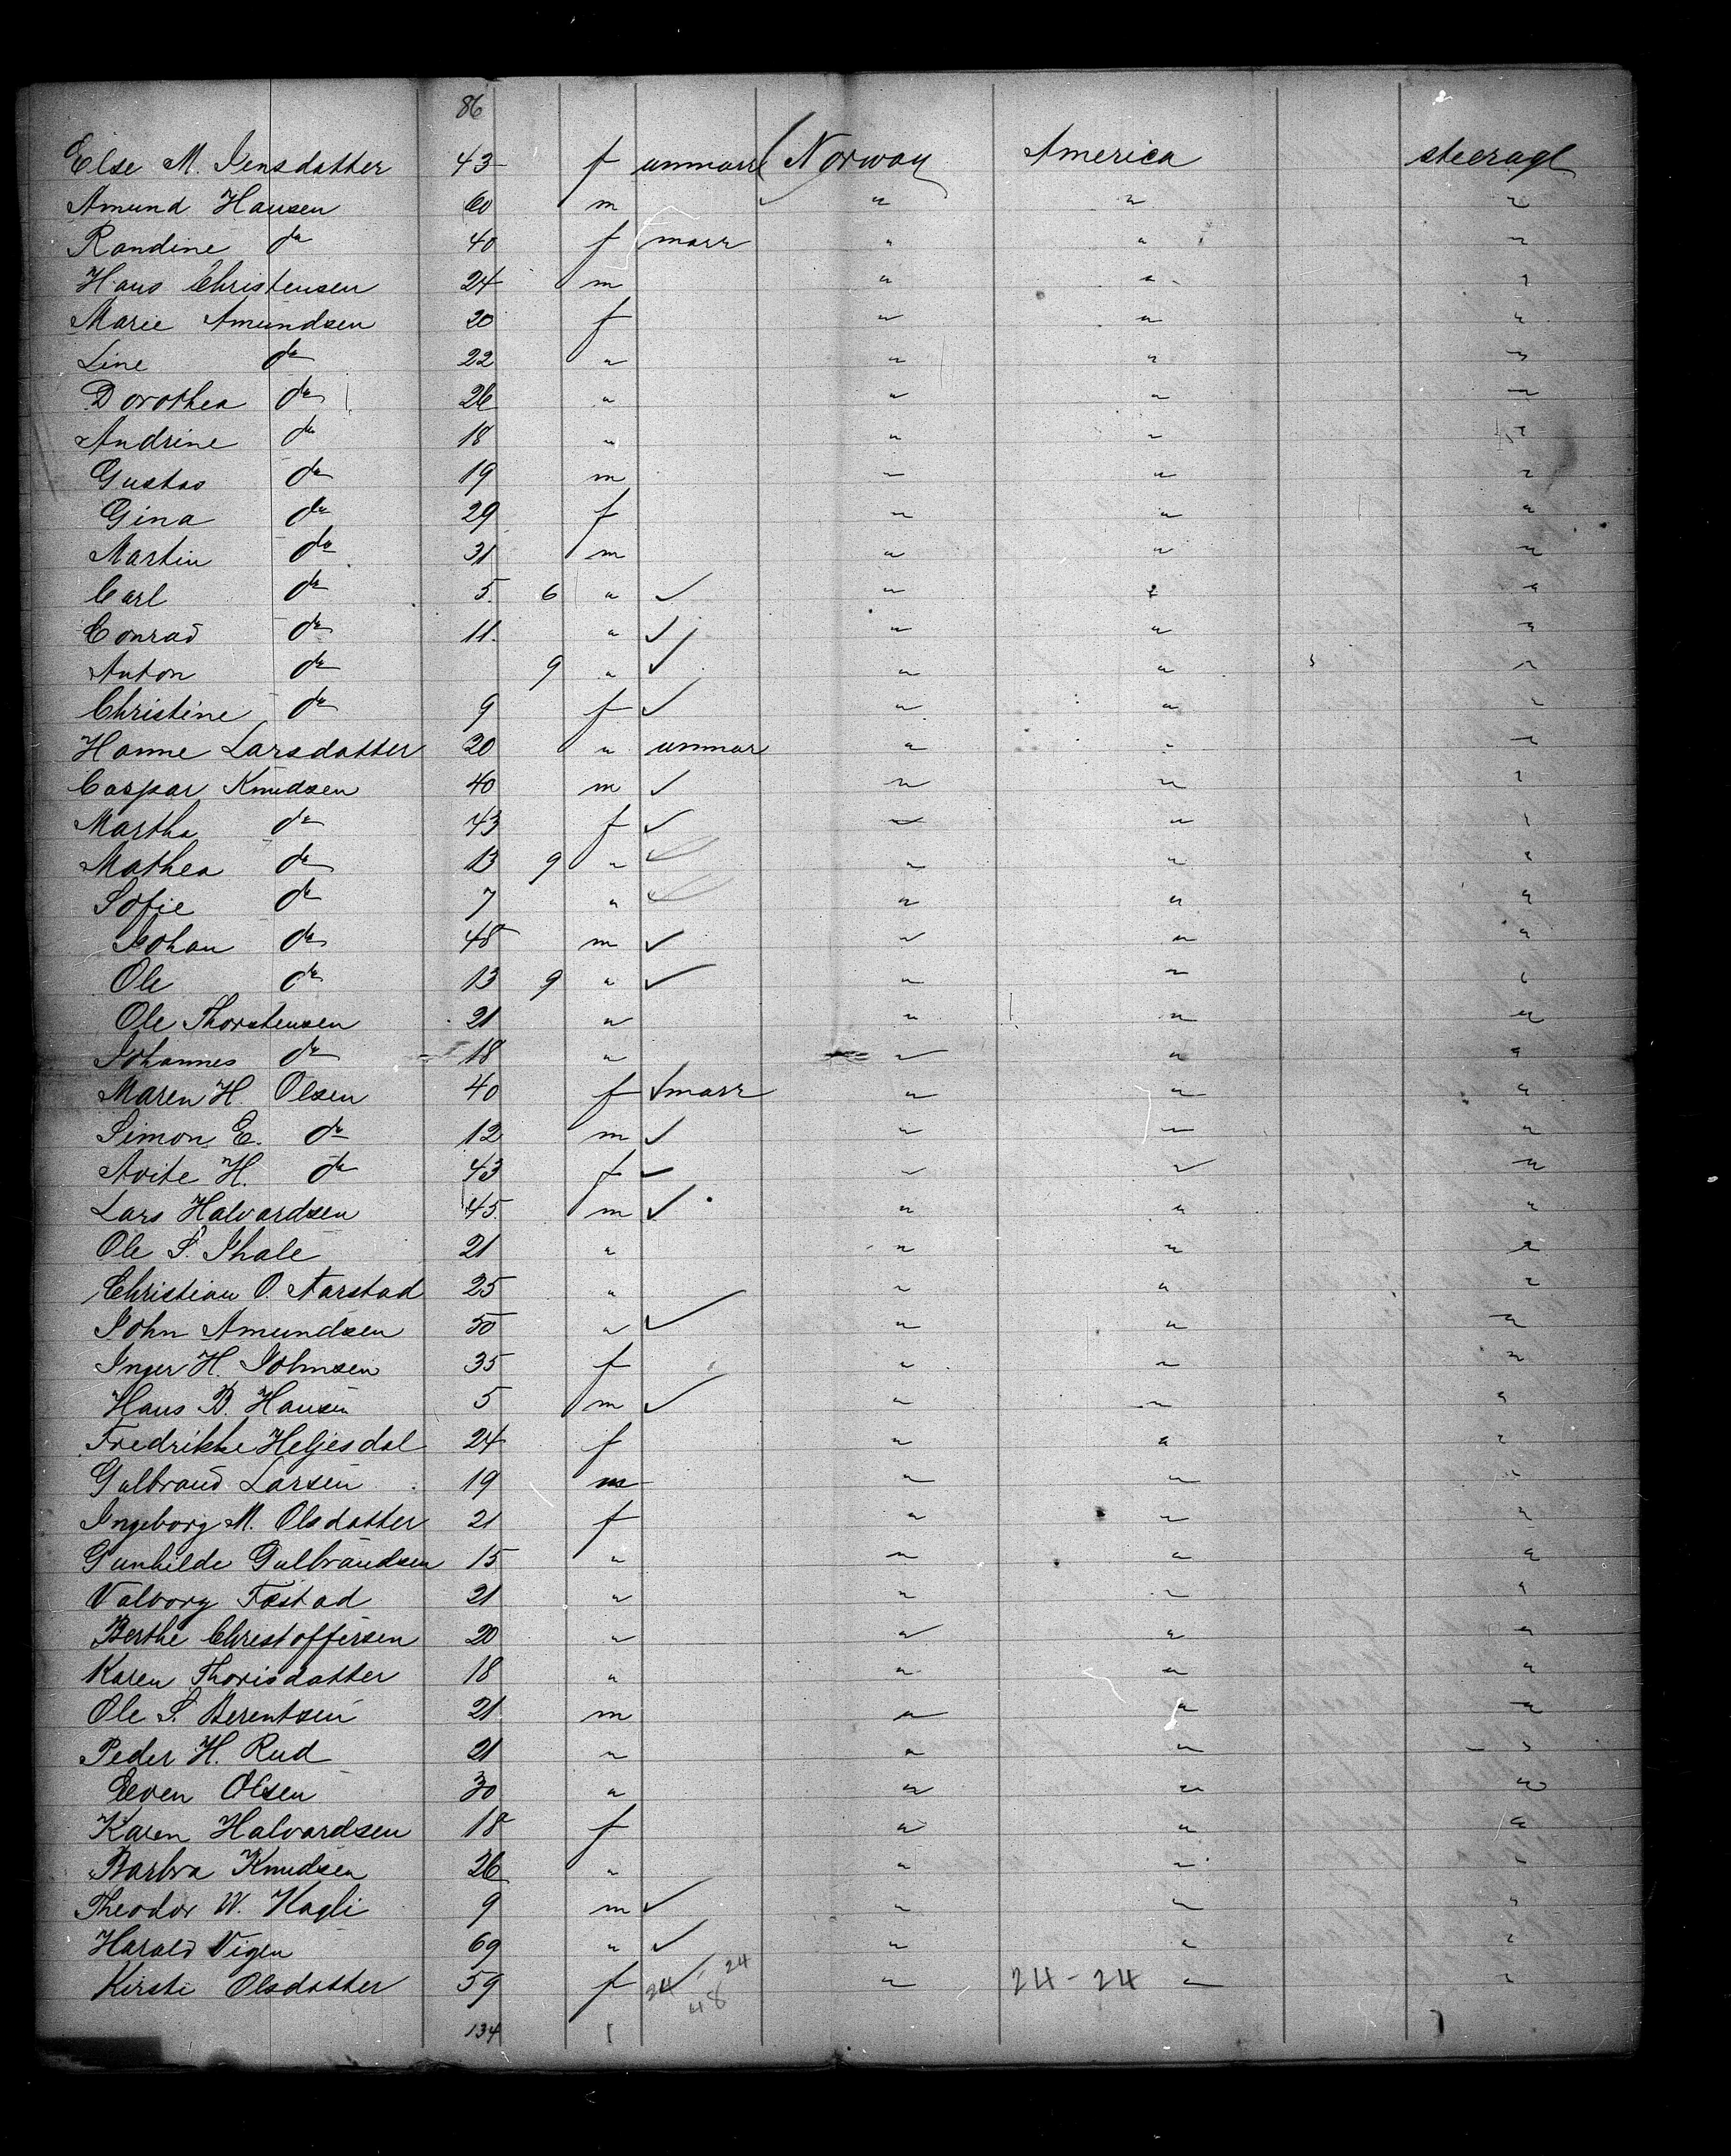 86
Else M. Jensdatter 43 f unmarr Norway America steerage
Amund Hansen 60 m " " "
Randine do 40 f marr " " "
Hans Christensen 24 m " " "
Marie Amundsen 20 f " " "
Line do 22 " " " "
Dorothea do 26 " " " "
Andrine do 18 " " " "
Gustav do 19 m " " "
Gina do 29 f " " "
Martin do 31 m " " "
Carl do 5 6 " ✓ " " "
Conrad do 11 " ✓ " " "
Anton do 9 " ✓ " " "
Christine do 9 f ✓ " " "
Hanne Larsdatter 20 " unmar " " "
Caspar Knudsen 40 m ✓ " " "
Martha do 43 f ✓ " " "
Mathea do 13 9 " ✓ " " "
Sofie do 7 " ✓ " " "
Johan do 48 m ✓ " " "
Ole do 13 9 " ✓ " " "
Ole Thorstensen 21 " " " "
Johannes do 18 " " " "
Maren H. Olsen 40 f ✓ marr " " "
Simon E. do 12 m ✓ " " "
Avite H. do 43 f ✓ " " "
Lars Halvardsen 45 m ✓ " " "
Ole S. Thale 21 " " " "
Christian O. Aarstad 25 " " " "
John Amundsen 50 " ✓ " " "
Inger H. Johnsen 35 f " " "
Hans B. Hansen 5 m ✓ " " "
Fredrikke Heljesdal 24 f " " "
Gulbrand Larsen 19 m " " "
Ingeborg M. Olsdatter 21 f " " "
Gunhilde Gulbrandsen 15 " " " "
Valborg Fostad 21 " " " "
Berthe Christoffersen 20 " " " "
Karen Thorisdatter 18 " " " "
Ole S. Berentsen 21 m " " "
Peder H. Rud 21 " " " "
Even Olsen 30 " " " "
Karen Halvardsen 18 f " " "
Barbra Knudsen 26 " " " "
Theodor W. Kagli 9 m ✓ " " "
Harald Vigen 69 " ✓ " " "
Kirsti Olsdatter 59 f ✓ 24 24 " 24-24 " "
48
134